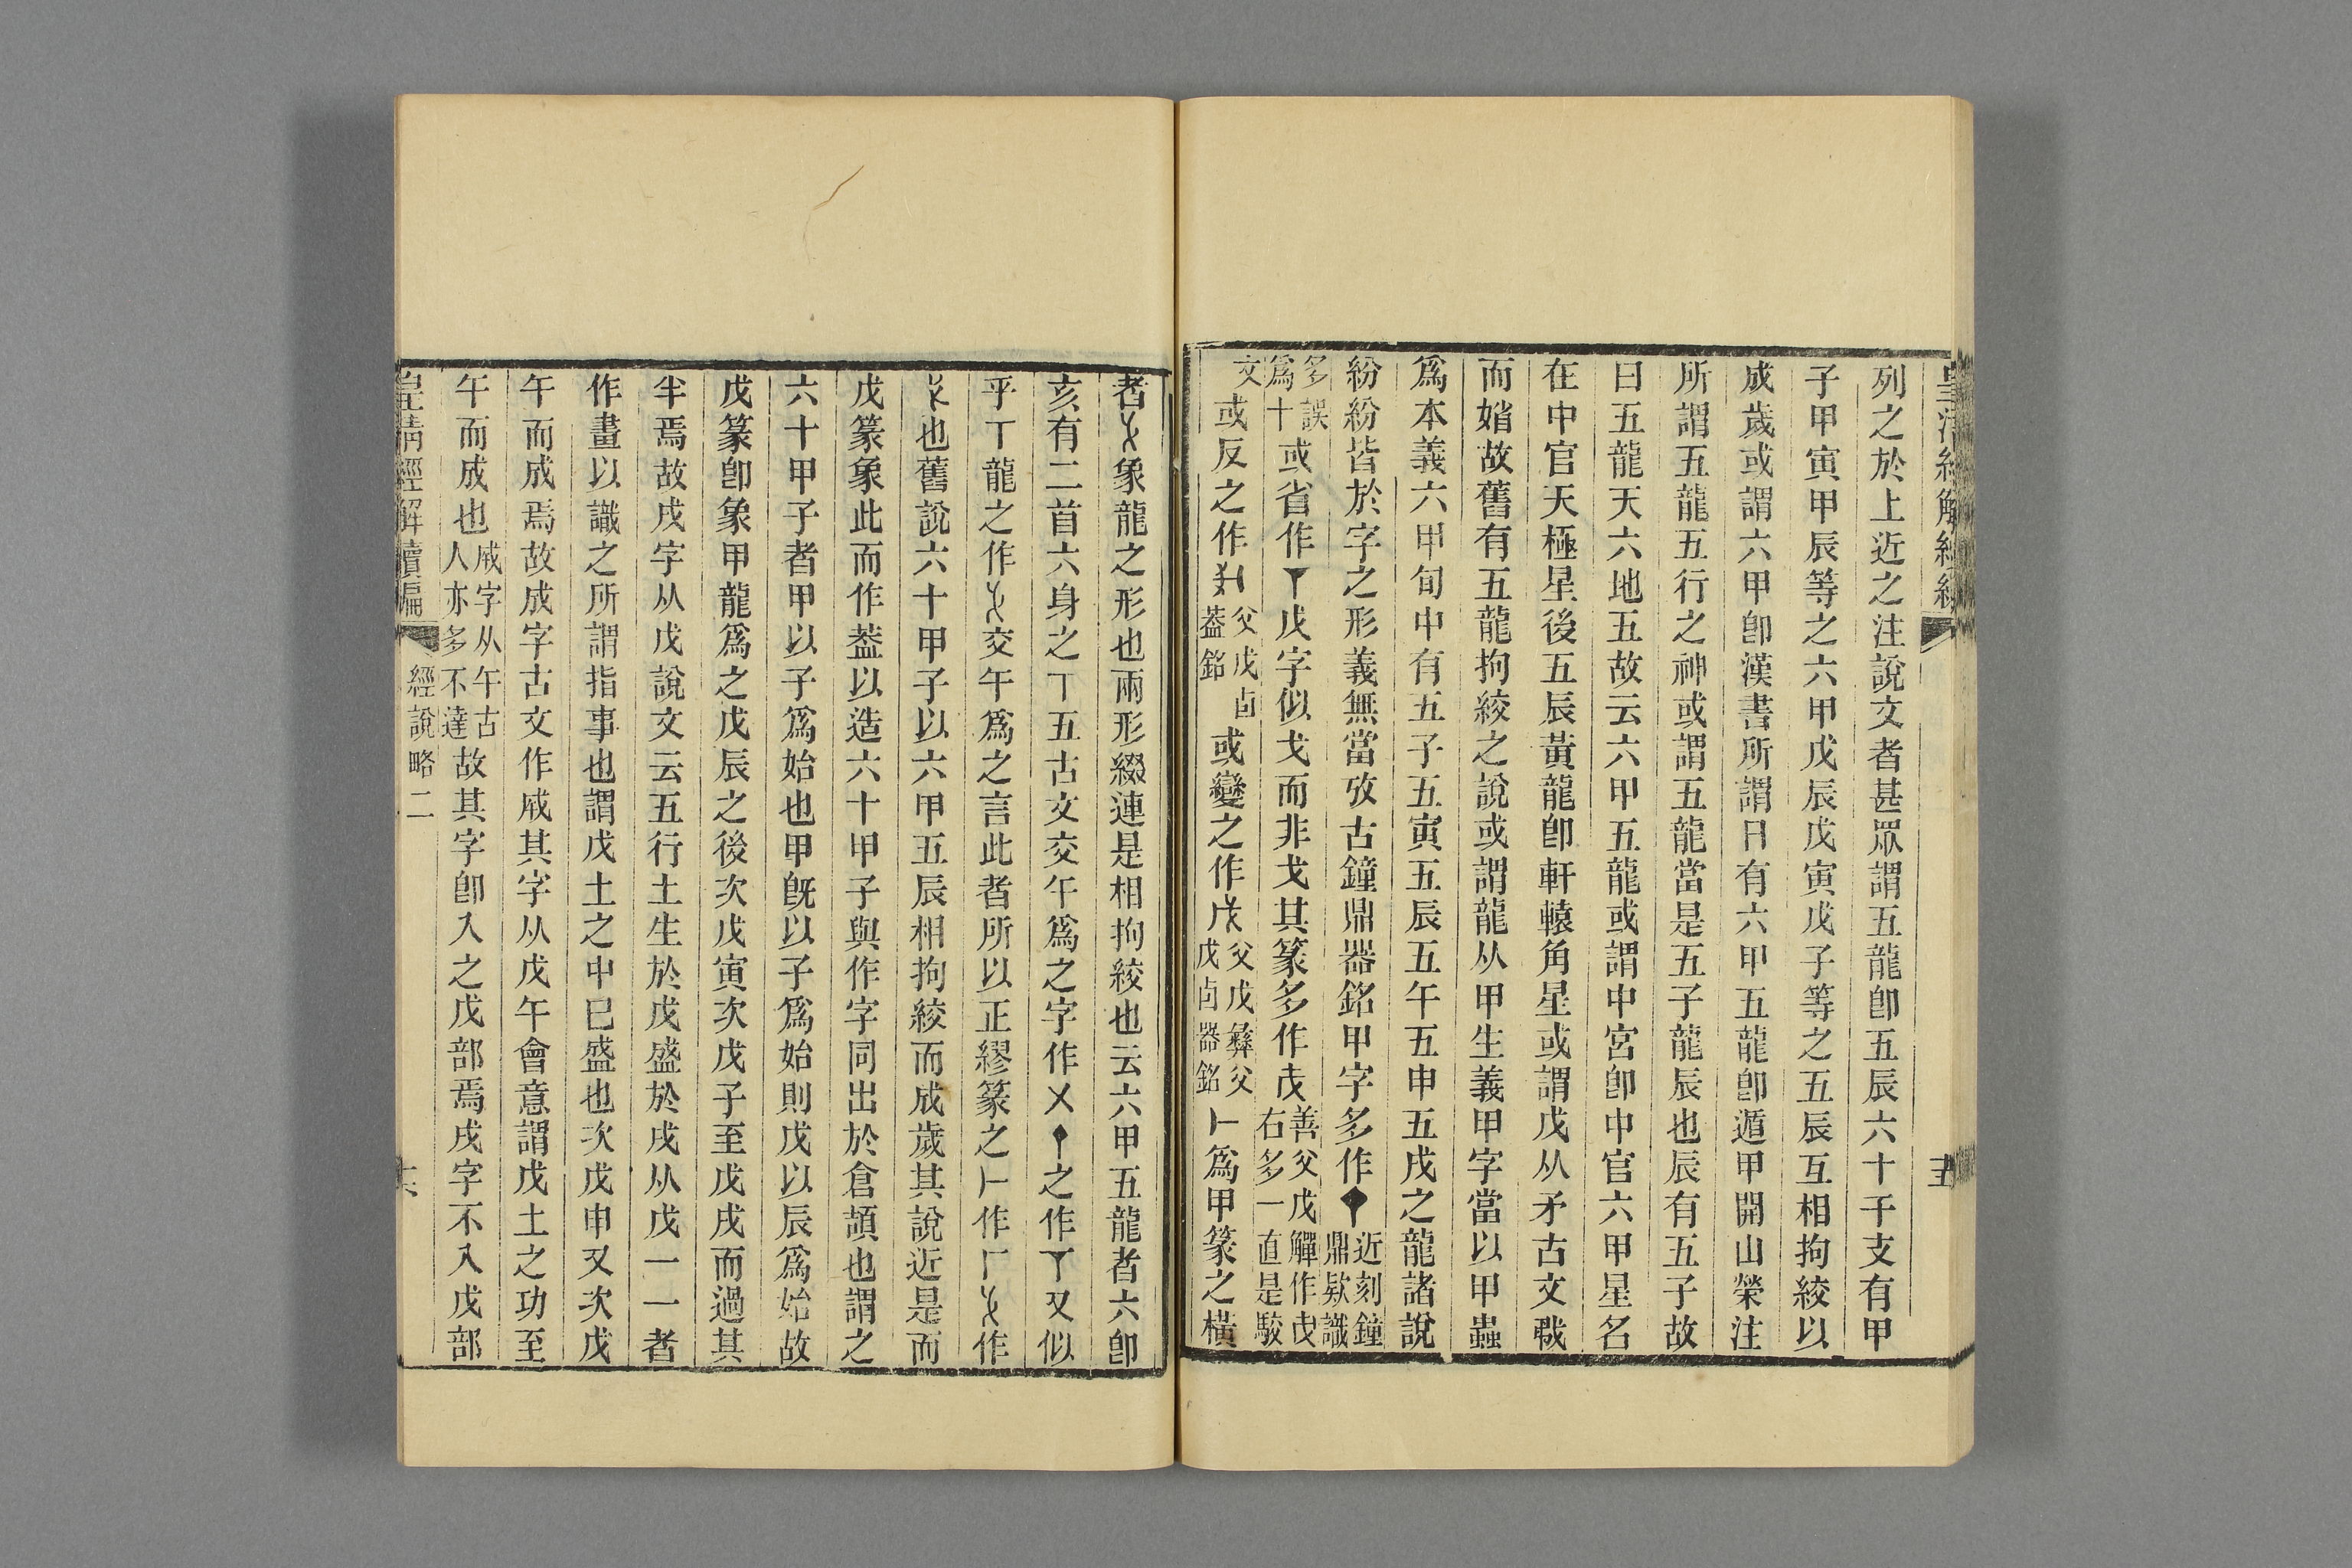 列之於上近之注說文者甚眾謂五龍卽五辰六十干支有甲
子甲寅甲辰等之六甲戊辰戊寅戊子等之五辰互相拘絞以
成歲或謂六甲卽漢書所謂日有六甲五龍卽遁甲開山榮注
所謂五龍五行之神或謂五龍當是五子龍辰也辰有五子故
曰五龍天六地五故云六甲五龍或謂中宮卽中官六甲星名
在中官天極星後五辰黃龍卽軒轅角星或謂戊从矛古文戰
而媘故舊有五龍拘絞之說或謂龍从甲生義甲字當以甲蟲
爲本義六甲旬中有五子五寅五辰五午五申五戌之龍諸說
紛紛皆於字之形義無當攷古鐘鼎器銘甲字多作近刻鐘鼎款識
多誤爲十或省作戊字似戈而非戈其篆多作善父戊觶作右多一直是駮
文或反之作父戊卣葢銘或變之作父戊彝父戊卣器銘爲甲篆之橫
者象龍之形也兩形綴連是相拘絞也云六甲五龍者六卽
亥有二首六身之丅五古文交午爲之字作㐅之作又似
乎丅龍之作交午爲之言此者所以正繆篆之作作
也舊說六十甲子以六甲五辰相拘絞而成歲其說近是而
戊篆象此而作葢以造六十甲子與作字同出於倉頡也謂之
六十甲子者甲以子爲始也甲旣以子爲始則戊以辰爲始故
戊篆卽象甲龍爲之戊辰之後次戊寅次戊子至戊戌而過其
半焉故戌字从戊說文云五行土生於戊盛於戌从戊一一者
作畫以識之所謂指事也謂戊土之中已盛也次戊申又次戊
午而成焉故成字古文作戚其字从戊午會意謂戊土之功至
午而成也戚字从午古人亦多不達故其字卽入之戊部焉戌字不入戊部
皇清經解續編
經說略二